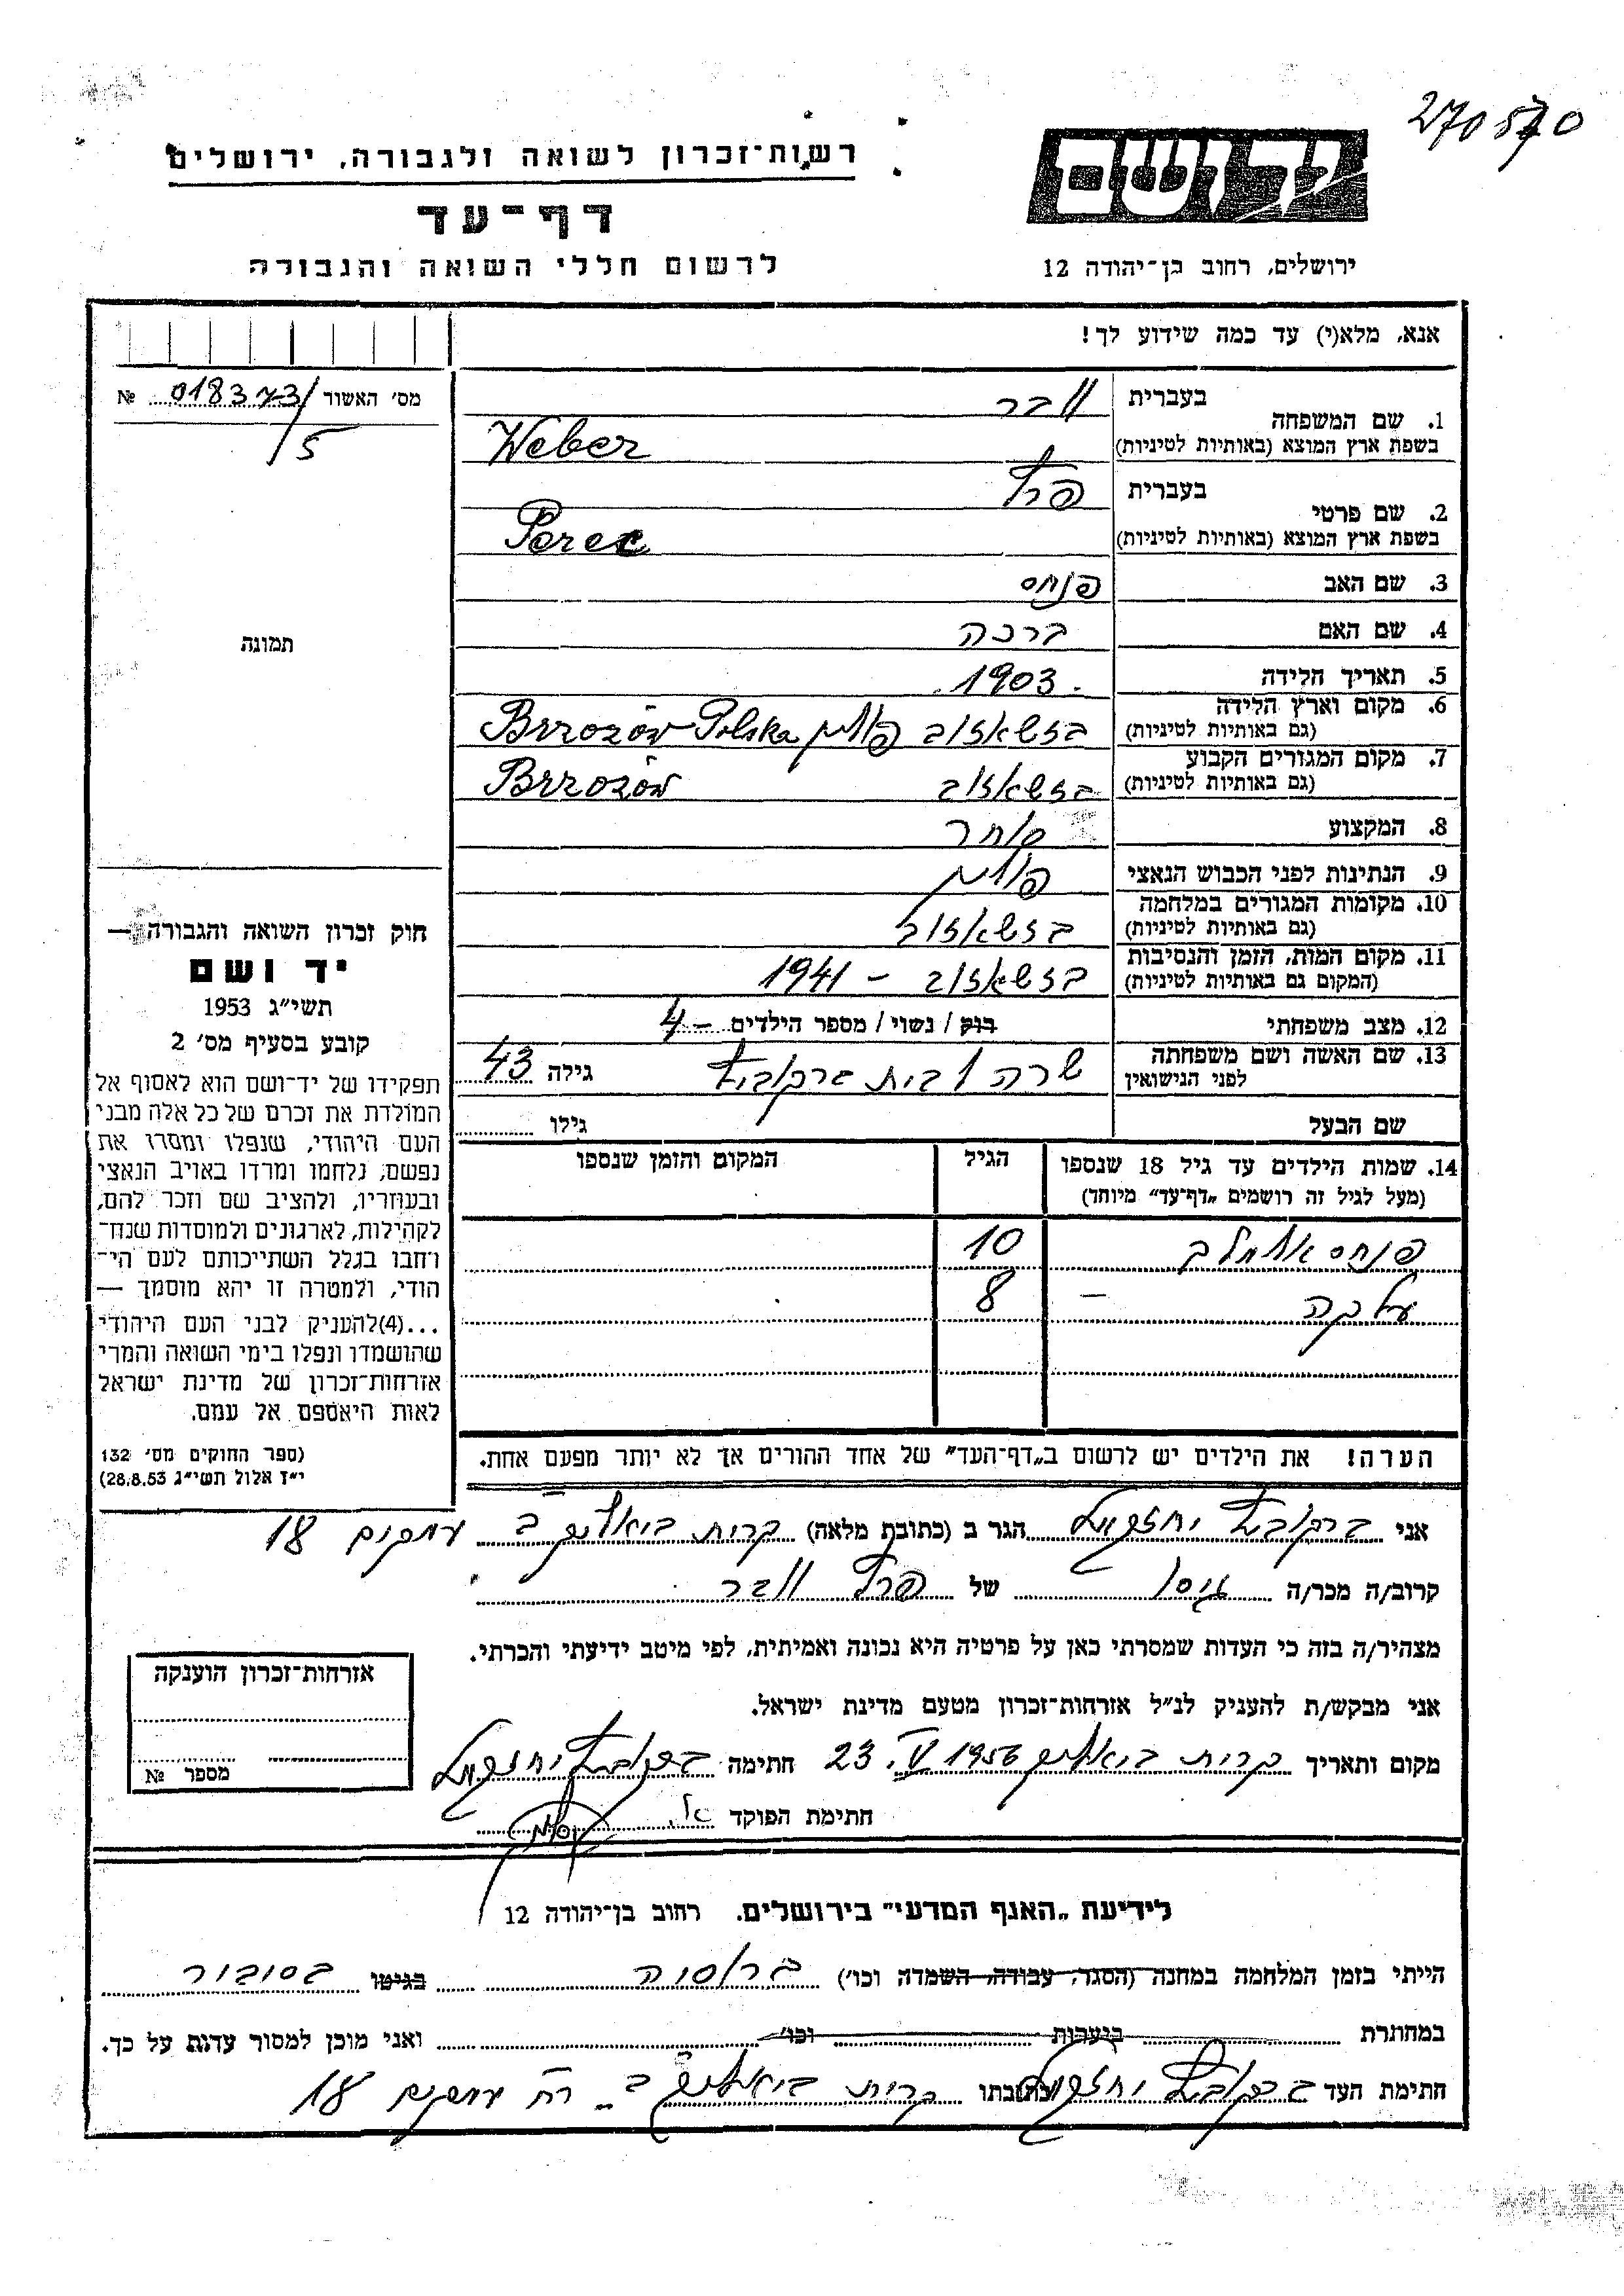 270570
רשות־זכרון לשואה ולגבורה, ירושלים
דף־עד
לרשום חללי השואה והגבורה
יד ושם
ירושלים, רחוב בן־יהודה 12
אנא, מלא(י) עד כמה שידוע לך!
מס׳ האשור 018373/5 №
תמונה
1. שם המשפחה בעברית וובר
בשפת ארץ המוצא (באותיות לטיניות) Weber
2. שם פרטי בעברית פרץ
בשפת ארץ המוצא (באותיות לטיניות) Perec
3. שם האב פנחס
4. שם האם ברכה
5. תאריך הלידה 1903
6. מקום וארץ הלידה
(גם באותיות לטיניות) בזשאזוב פולין Brrozów Polska
7. מקום המגורים הקבוע
(גם באותיות לטיניות) בזשאזוב Brrozów
8. המקצוע סוחר
9. הנתינות לפני הכבוש הנאצי פולין
10. מקומות המגורים במלחמה
(גם באותיות לטיניות) בזשאזוב
11. מקום המות, הזמן והנסיבות
(המקום גם באותיות לטיניות) בזשאזוב – 1941
12. מצב משפחתי רוק / נשוי / מספר הילדים 4
13. שם האשה ושם משפחתה
לפני הנישואין שרה לבית ברקוביץ גילה 43
שם הבעל גילו
14. שמות הילדים עד גיל 18 שנספו הגיל המקום והזמן שנספו
(מעל לגיל זה רושמים „דף־עד” מיוחד)
פנחס 10
8
הערה! את הילדים יש לרשום ב„דף־העד” של אחד ההורים אך לא יותר מפעם אחת.
חוק זכרון השואה והגבורה —
יד ושם
תשי״ג 1953
קובע בסעיף מס׳ 2
תפקידו של יד־ושם הוא לאסוף אל
המולדת את זכרם של כל אלה מבני
העם היהודי, שנפלו ומסרו את
נפשם, נלחמו ומרדו באויב הנאצי
ובעוזריו, ולהציב שם וזכר להם,
לקהילות, לארגונים ולמוסדות שנח־
רבו בגלל השתייכותם לעם הי־
הודי, ולמטרה זו יהא מוסמך —
...(4)להעניק לבני העם היהודי
שהושמדו ונפלו בימי השואה והמרי
אזרחות־זכרון של מדינת ישראל
לאות היאספם אל עמם.
(ספר החוקים מס׳ 132
י״ז אלול תשי״ג 28.8.53)
אני ברקוביץ יחזקאל הגר ב (כתובת מלאה) קרית ביאליק ב 18
קרוב/ה מכר/ה גיסו של פרץ וובר
מצהיר/ה בזה כי העדות שמסרתי כאן על פרטיה היא נכונה ואמיתית, לפי מיטב ידיעתי והכרתי.
אני מבקש/ת להעניק לנ״ל אזרחות־זכרון מטעם מדינת ישראל.
מקום ותאריך קרית ביאליק 23.V.1956 חתימה ברקוביץ יחזקאל
חתימת הפוקד
אזרחות־זכרון הוענקה
מספר №
לידיעת „האגף המדעי” בירושלים. רחוב בן־יהודה 12
הייתי בזמן המלחמה במחנה (הסגר, עבודה, השמדה וכו׳) ברוסיה בגיטו בסיביר
במחתרת ביערות וכו׳ ואני מוכן למסור עדות על כך.
חתימת העד ברקוביץ יחזקאל כתובתו קרית ביאליק ב רח 18